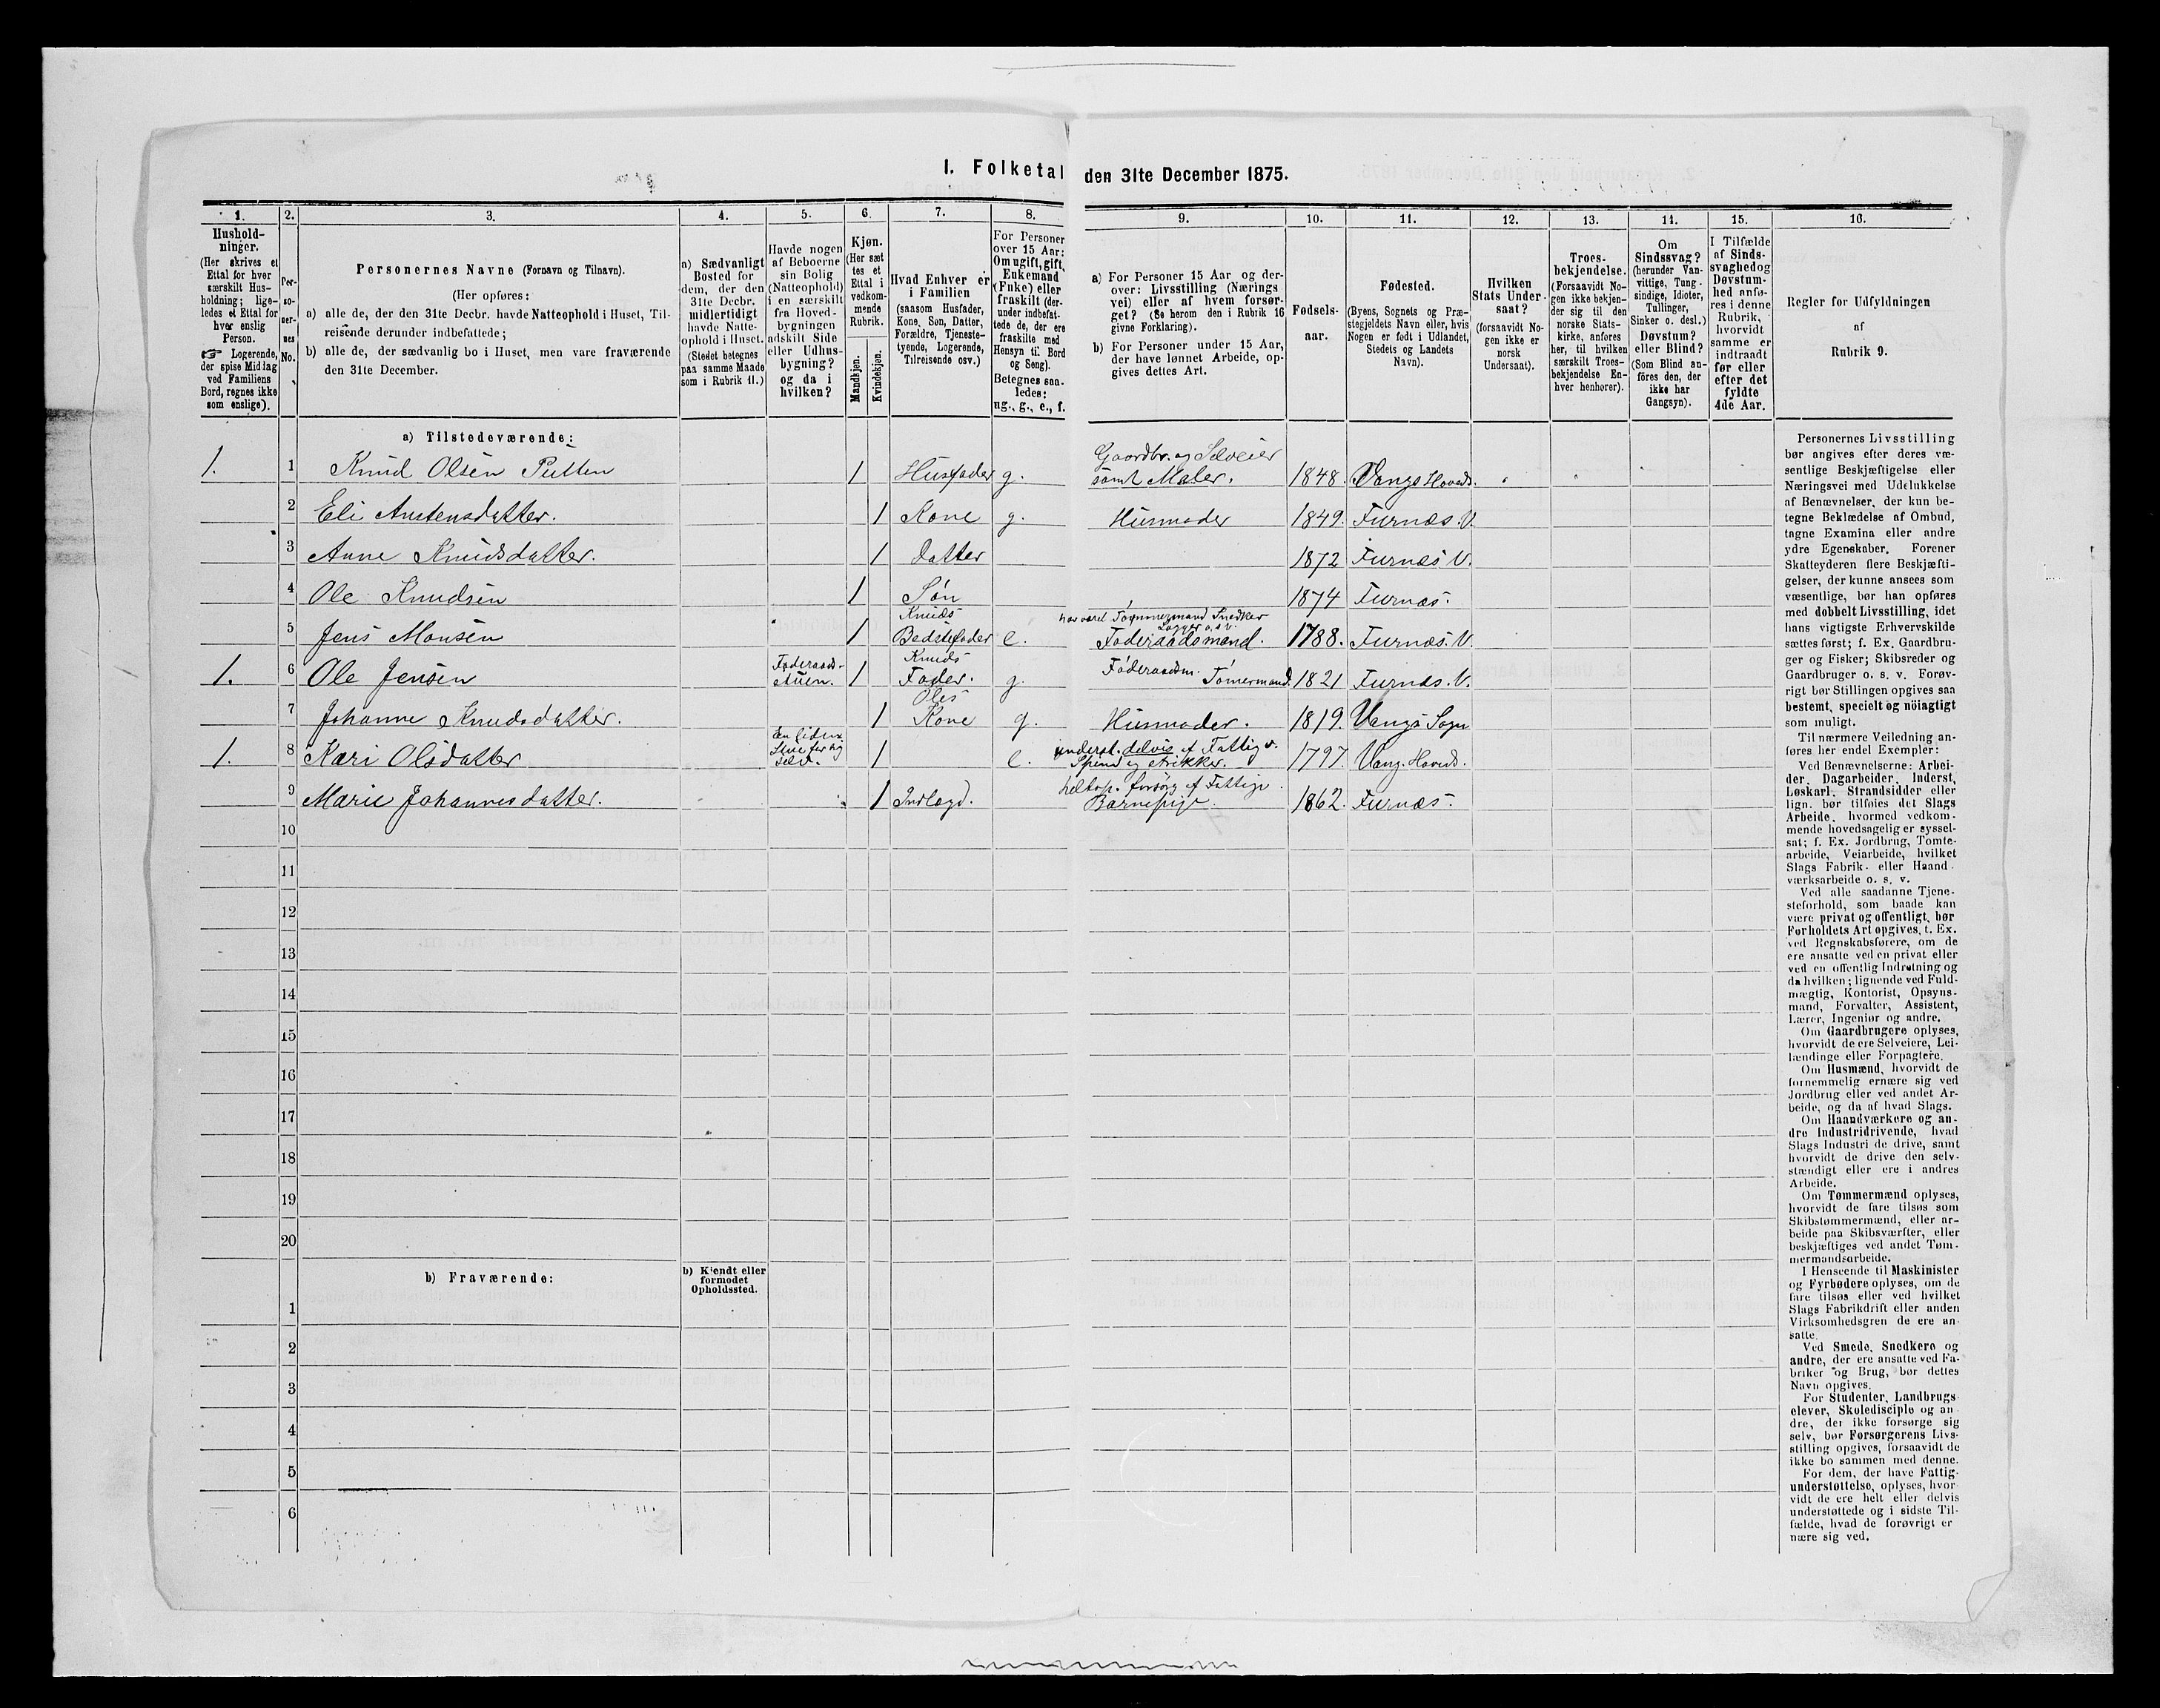 I. Folketal den 31te December 1875.
1. 2. 3. 4. 5. 6. 7. 8. 9. 10. 11. 12. 13. 14. 15. 16.
Hushold-
ninger.
(Her skrives et
Ettal for hver
særskilt Hus-
holdning; lige-
ledes et Ettal for
hver enslig
Person.
☞ Logerende,
der spise Middag
ved Familiens
Bord, regnes ikke
som enslige).
Per-
so-
ner-
nes
No.
Personernes Navne (Fornavn og Tilnavn).
(Her opføres:
a) alle de, der den 31te Decbr. havde Natteophold i Huset, Til-
reisende derunder indbefattede;
b) alle de, der sædvanlig bo i Huset, men vare fraværende
den 31te December.
a) Sædvanligt
Bosted for
dem, der den
31te Decbr.
midlertidigt
havde Natte-
ophold i Huset.
(Stedet betegnes
paa samme Maade
som i Rubrik 11.)
Havde nogen
af Beboerne
sin Bolig
(Natteophold)
i en særskilt
fra Hoved-
bygningen
adskilt Side
eller Udhus-
bygning?
og da i
hvilken?
Kjøn.
(Her sæt
tes et
Ettal i
vedkom-
mende
Rubrik.
Mandkjøn.
Kvindekjøn.
Hvad Enhver er
i Familien
(saasom Husfader,
Kone, Søn, Datter,
Forældre, Tjeneste-
tyende, Logerende,
Tilreisende osv.)
For Personer
over 15 Aar:
Om ugift, gift,
Enkemand
(Enke) eller
fraskilt (der-
under indbefat-
tede de, der ere
fraskilte med
Hensyn til Bord
og Seng).
Betegnes saa-
ledes:
ug., g., e., f.
a) For Personer 15 Aar og der-
over: Livsstilling (Nærings
vei) eller af hvem forsør-
get? (Se herom den i Rubrik 16
givne Forklaring).
b) For Personer under 15 Aar,
der have lønnet Arbeide, op-
gives dettes Art.
Fødsels-
aar.
Fødested.
(Byens, Sognets og Præ-
stegjeldets Navn eller, hvis
Nogen er født i Udlandet,
Stedets og Landets
Navn).
Hvilken
Stats Under-
saat?
(forsaavidt No-
gen ikke er
norsk
Undersaat).
Troes-
bekjendelse.
(Forsaavidt No-
gen ikke bekjen-
der sig til den
norske Stats-
kirke, anføres
her, til hvilken
særskilt Troes-
bekjendelse En-
hver henhører).
Om
Sindssvag?
(herunder Van-
vittige, Tung-
sindige, Idioter,
Tullinger,
Sinker o. desl.)
Døvstum?
eller Blind?
(Som Blind an-
føres den, der
ikke har
Gangsyn).
I Tilfælde
af Sinds-
svaghed og
Døvstum-
hed anfø-
res i denne
Rubrik,
hvorvidt
samme er
indtraadt
før eller
efter det
fyldte
4de Aar.
Regler for Udfyldningen
af
Rubrik 9.
a) Tilstedeværende:
1. 1 Knud Olsen Putten 1 Husfader g. Gaardbr. og Selveier samt Maler. 1848. Vangs Hoveds.
2 Eli Austensdatter. 1 Kone g. Husmoder 1849. Furnæs. V.
3 Anne Knudsdatter. 1 Datter 1872 Furnæs V.
4 Ole Knudsen 1 Søn 1874 Furnæs.
5 Jens Monsen 1 Knuds Bedstefader e. har været Tømmermand Snedker o.s.v. Føderaadsmand. 1788. Furnæs. V.
1. 6 Ole Jensen Føderaads-stuen. 1 Knuds Fader. g. Føderaadsm. Tømermand. 1821 Furnæs. V.
7 Johanne Knudsdatter. 1 Oles Kone g. Husmoder. 1819. Vangs Sogn
1. 8 Kari Olsdatter En liden Stue for sig selv. 1 e. underst. delvis af Fattigv. Spind og strikker. 1797. Vang. Hoveds.
9 Marie Johannesdatter. 1 Indlagd. forsørg af Fattigv. Barnepige. 1862. Furnæs.
10
11
12
13
14
15
16
17
18
19
20
b) Fraværende:
b) Kjendt eller
formodet
Opholdssted.
1
2
3
4
5
6
Personernes Livsstilling
bør angives efter deres væ-
sentlige Beskjæftigelse eller
Næringsvei med Udelukkelse
af Benævnelser, der kun be-
tegne Beklædelse af Ombud,
tagne Examina eller andre
ydre Egenskaber. Forener
Skatteyderen flere Beskjæfti-
gelser, der kunne ansees som
væsentlige, bør han opføres
med dobbelt Livsstilling, idet
hans vigtigste Erhvervskilde
sættes først; f. Ex. Gaardbru-
ger og Fisker; Skibsreder og
Gaardbruger o. s. v. Forøv-
rigt bør Stillingen opgives saa
bestemt, specielt og nöiagtigt
som muligt.
Til nærmere Veiledning an-
føres her endel Exempler:
Ved Benævnelserne: Arbei-
der, Dagarbeider, Inderst,
Løskarl, Strandsidder eller
lign. bør tilføies det Slags
Arbeide, hvormed vedkom-
mende hovedsagelig er syssel-
sat; f. Ex. Jordbrug, Tomte-
arbeide, Veiarbeide, hvilket
Slags Fabrik- eller Haand-
værksarbeide o. s. v.
Ved alle saadanne Tjene-
steforhold, som baade kan
være privat og offentligt, bør
Forholdets Art opgives, t. Ex.
ved Regnskabsførere, om de
ere ansatte ved en privat eller
ved en offentlig Indretning og
da hvilken; lignende ved Fuld-
mægtig, Kontorist, Opsyns-
mand, Forvalter, Assistent,
Lærer, Ingeniør og andre.
Om Gaardbrugere oplyses,
hvorvidt de ere Selveiere, Lei-
lændinge eller Forpagtere.
Om Husmænd, hvorvidt de
fornemmelig ernære sig ved
Jordbrug eller ved andet Ar-
beide, og da af hvad Slags.
Om Haandværkere og an-
dre Industridrivende, hvad
Slags Industri de drive, samt
hvorvidt de drive den selv-
stændigt eller ere i andres
Arbeide.
Om Tømmermænd oplyses,
hvorvidt de fare tilsøs som
Skibstømmermænd, eller ar-
beide paa Skibsværfter, eller
beskjæftiges ved andet Tøm-
mermandsarbeide.
I Henseende til Maskinister
og Fyrbødere oplyses, om de
fare tilsøs eller ved hvilket
Slags Fabrikdrift eller anden
Virksomhedsgren de ere an-
satte.
Ved Smede, Snedkere og
andre, der ere ansatte ved Fa-
briker og Brug, bør dettes
Navn opgives.
For Studenter, Landbrugs-
elever, Skoledisciple og an-
dre, der ikke forsørge sig
selv, bør Forsørgerens Livs-
stilling opgives, forsaavidt de
ikke bo sammen med denne.
For dem, der have Fattig-
understøttelse, oplyses, hvor-
vidt de ere helt eller delvis
understøttede og i sidste Til-
fælde, hvad de forøvrigt er-
nære sig ved.